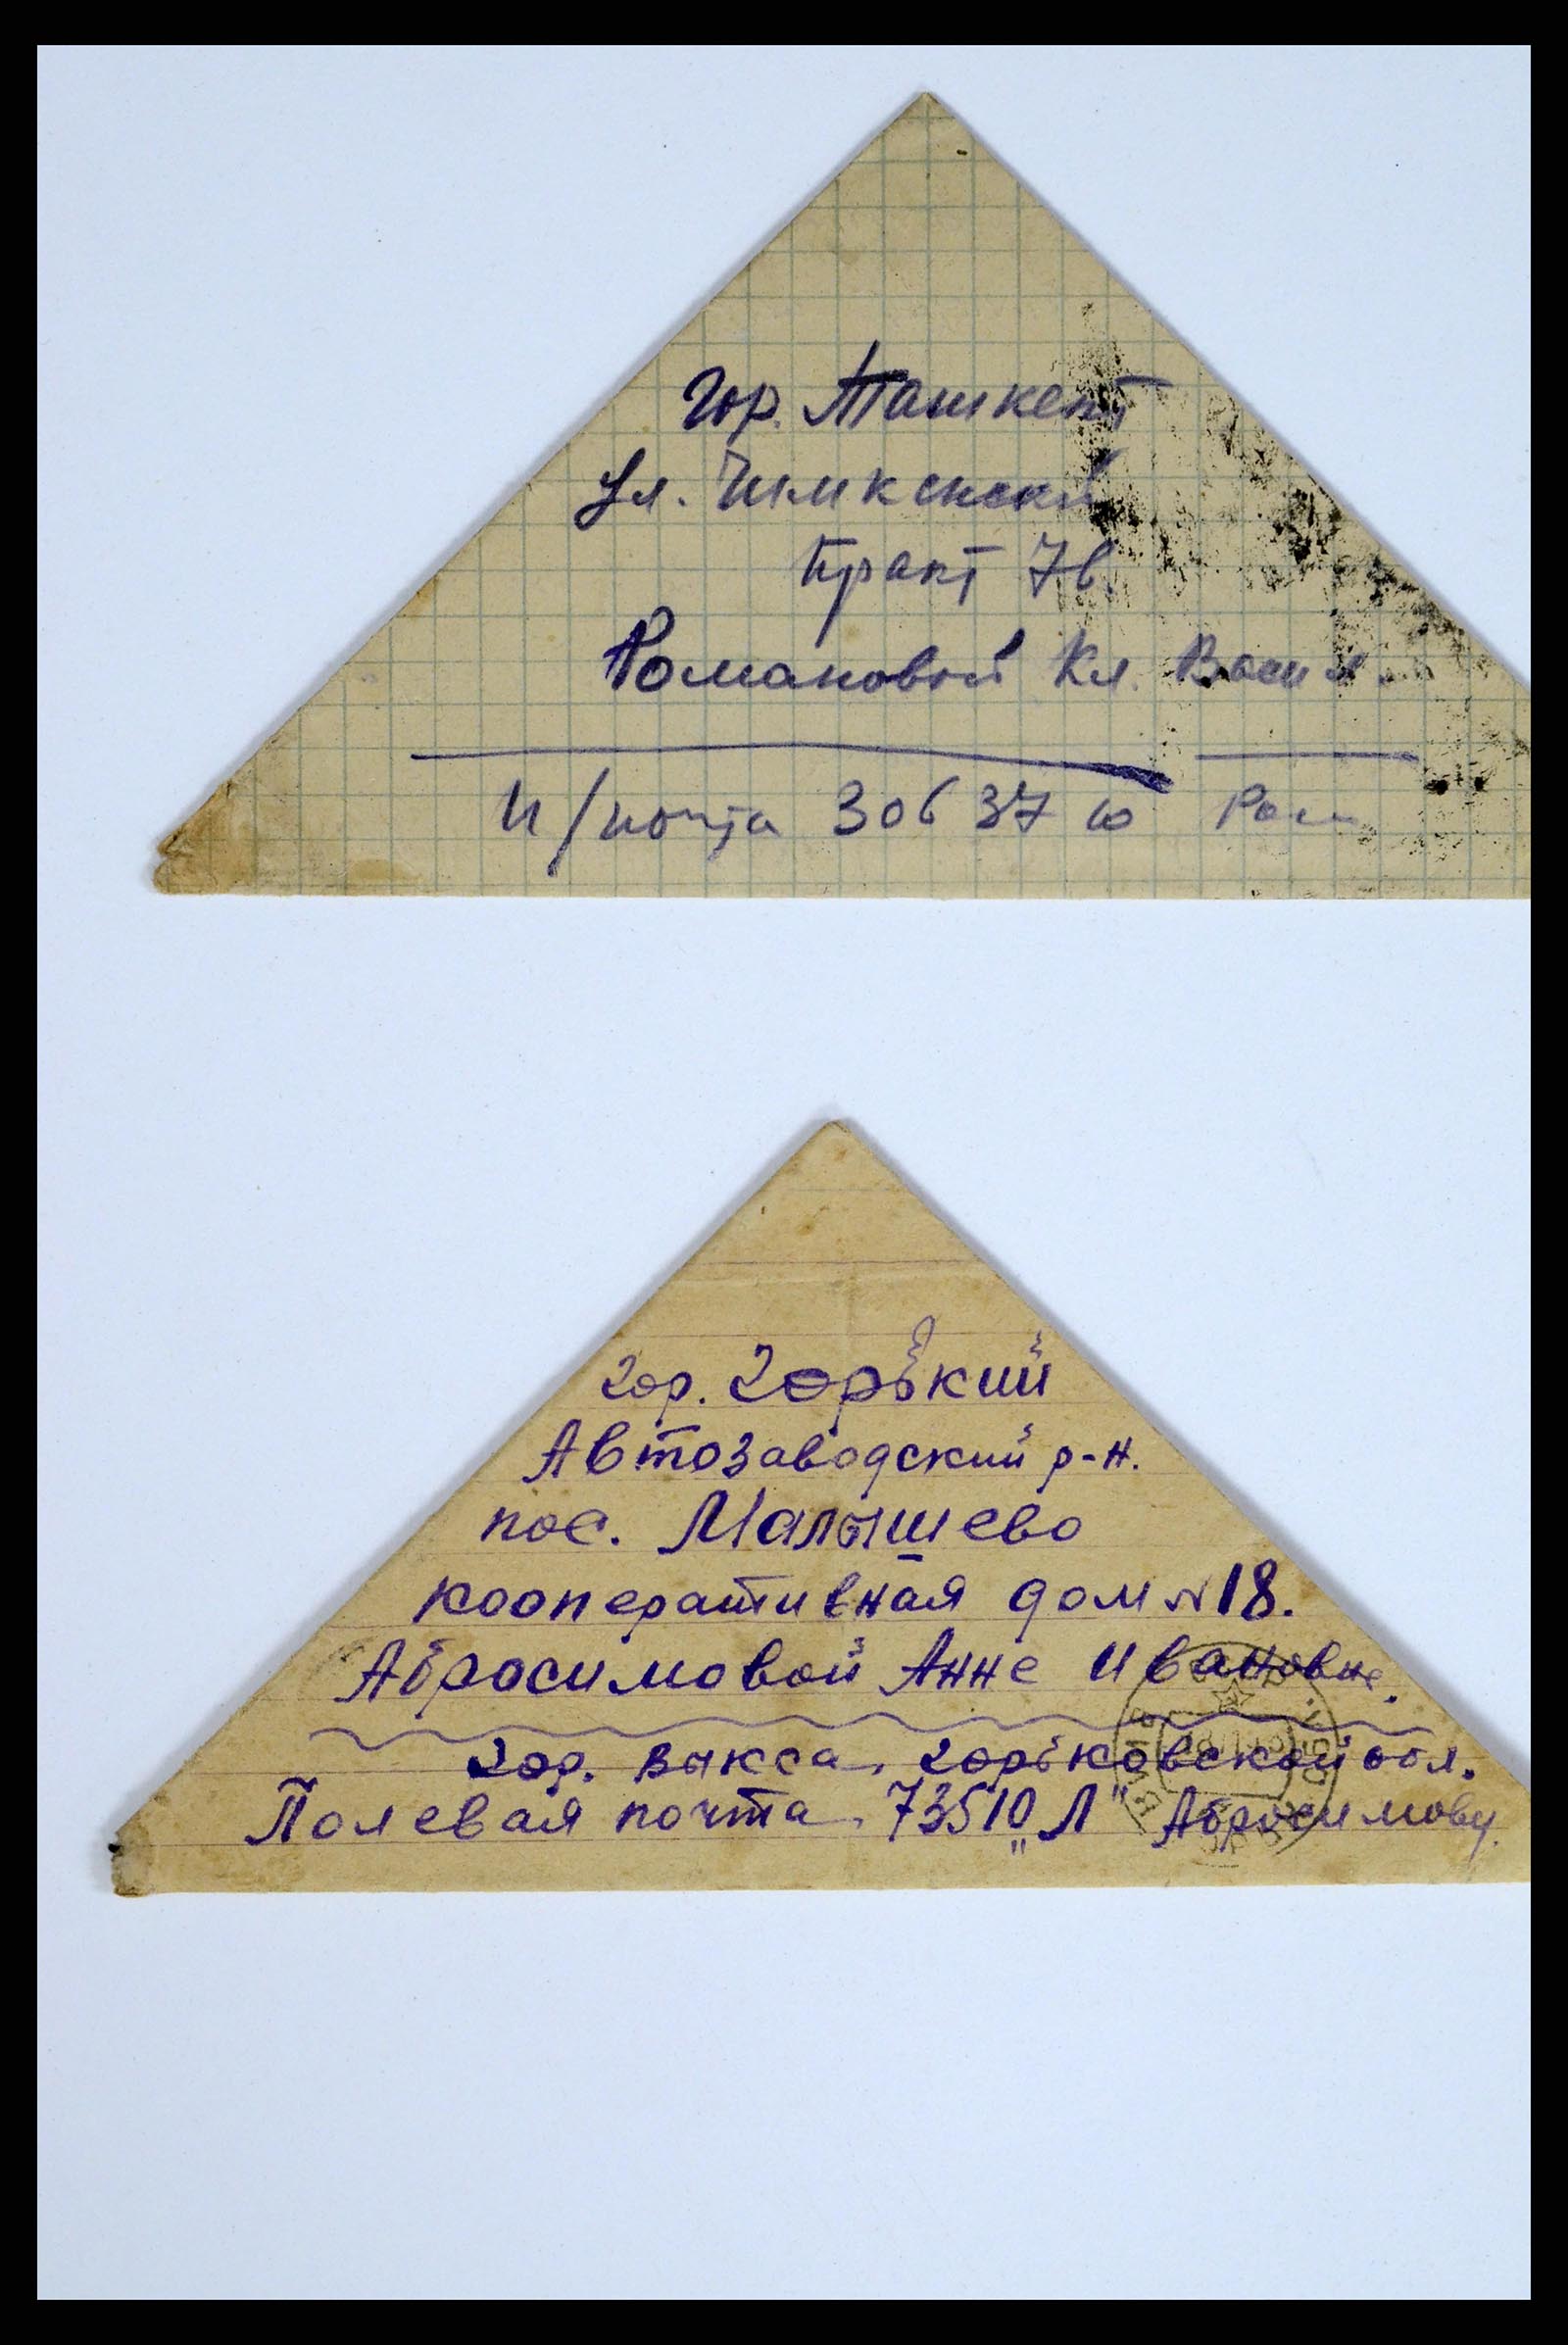 гор. Ташкент
ул. Чимкенский
тракт 7в.
Романовой Кл. Васил.
П/почта 30637 ю
гор. Горький
Автозаводский р-н.
пос. Малышево
кооперативная дом № 18.
Абросимовой Анне Ивановне.
гор. Выкса, Горьковской обл.
Полевая почта, 73510 „Л“ Абросимову.